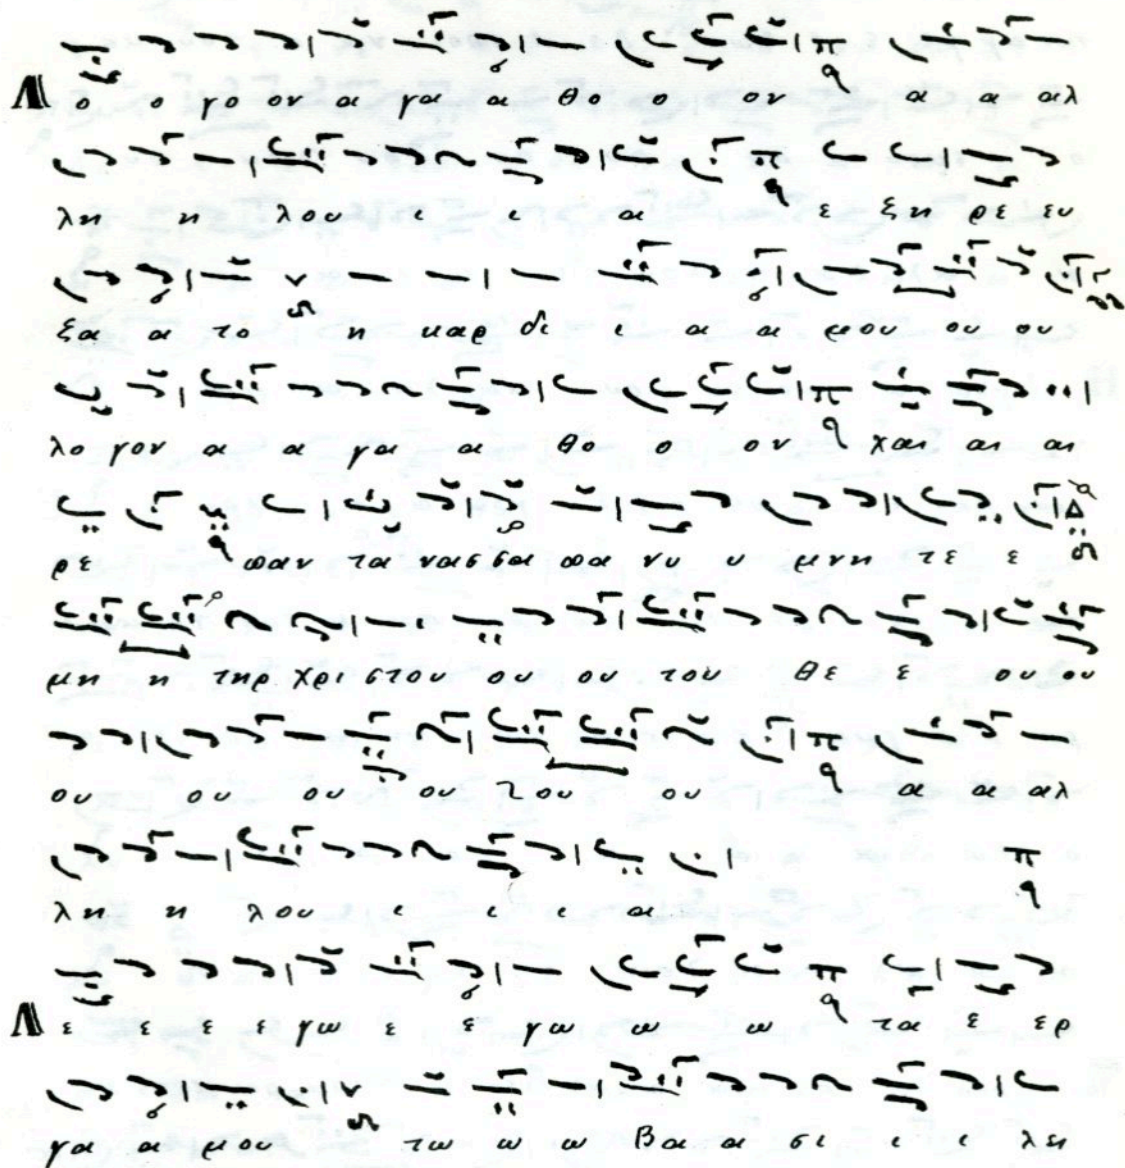 Λο ο γο ον α γα α θο ο ον α α αλ
λη η λου ι ι α ε ξη ρε ευ
ξα α το η καρ δι ι α α μου ου ου
λο γον α α γα α θο ο ον χαι αι αι
ρε παν τα νασσα πα νυ υ μνη τε ε
μη η τηρ Χρι στου ου ου του θε ε ου ου
ου ου ου ου ου α α αλ
λη η λου ι ι ι α
Λε ε ε ε γω ε ε γω ω ω τα ε ερ
γα α μου τω ω ω Βα α σι ι ι λει